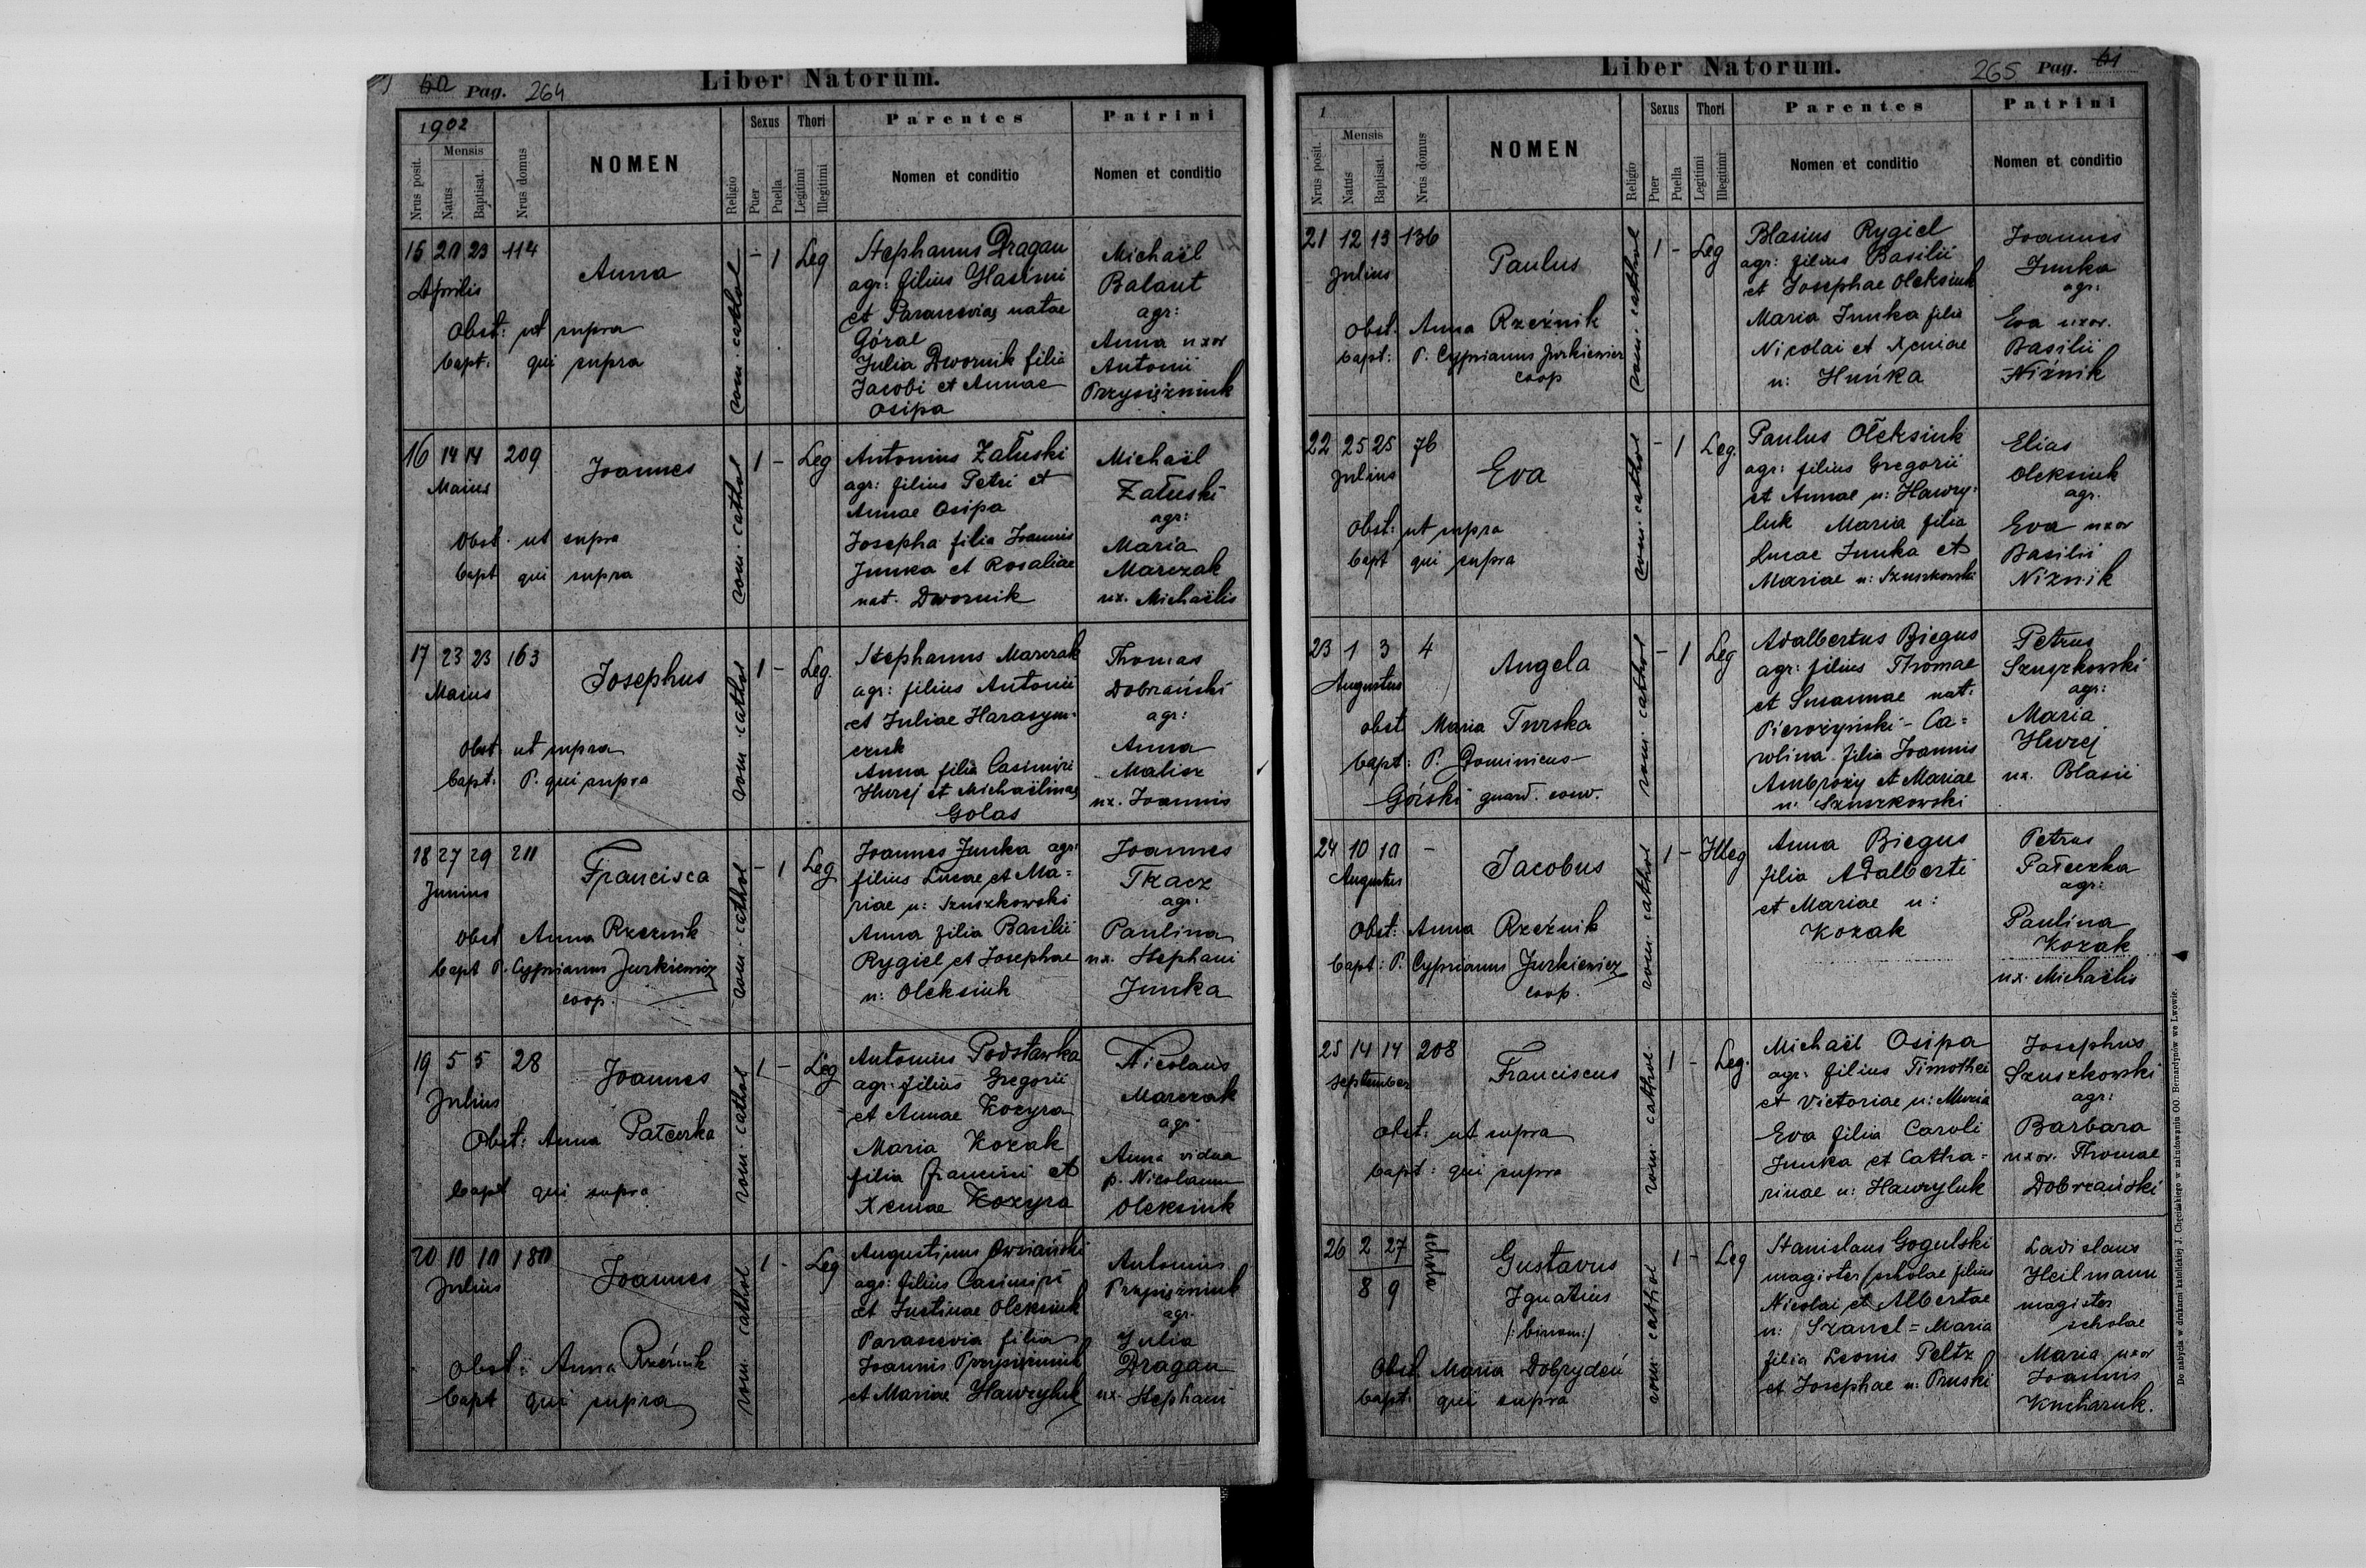 60 Pag. 264
Liber Natorum.
1902
Nrus posit.
Mensis
Natus
Baptisat.
Nrus domus
NOMEN
Religio
Sexus
Puer
Puella
Thori
Legitimi
Illegitimi
Parentes
Nomen et conditio
Patrini
Nomen et conditio
15 20 23 114
Aprilis
Anna
Obst: ut supra
bapt. qui supra
rom. cathol
- 1 Leg
Stephanus Dragan
agr: filius
et Parasceviae natae
Góral
Julia Dwornik filia
Jacobi et Annae
Osipa
Michaël
Balaut
agr:
Anna uxor
Antonii
Przysiężniuk
16 14 14 209
Maius
Joannes
Obst. ut supra
bapt qui supra
rom. cathol
1 - Leg
Antonius Załuski
agr: filius Petri et
Annae Osipa
Josepha filia Joannis
Junka et Rosaliae
nat. Dwornik
Michaël
Załuski
agr:
Maria
Marczak
ux. Michaëlis
17 23 23 163
Maius
Josephus
Obst. ut supra
bapt: P. qui supra
rom. cathol
1 - Leg.
Stephanus Marczak
agr: filius Antonii
et Juliae Harasym-
czuk
Anna filia Casimiri
Hurej et Michaëlinae
Golas
Thomas
Dobrzański
agr:
Anna
Malisz
ux. Joannis
18 27 29 211
Junius
Francisca
Obst Anna Rzeznik
bapt P. Cyprianus Jurkiewicz
coop.
rom. cathol
- 1 Leg
Joannes Junka agr:
filius Lucae et Ma=
riae n: Szuszkowski
Anna filia Basilii
Rygiel et Josephae
n: Oleksiuk
Joannes
Tkacz
agr.
Paulina
ux. Stephani
Junka
19 5 5 28
Julius
Joannes
Obst: Anna Pałeczka
bapt qui supra
rom. cathol
1 - Leg
Antonius Podstawka
agr: filius Gregorii
et Annae Kozyra
Maria Kozak
filia Francisci et
Xeniae Kozyra
Nicolaus
Marczak
agr.
Anna vidua
p. Nicolaum
Oleksiuk
20 10 10 180
Julius
Joannes
Obst: Anna Rzeźnik
bapt qui supra
rom. cathol
1 - Leg
Augustinus Owsiański
agr: filius Casimiri
et Justinae Oleksiuk
Parascevia filia
Joannis Przysiężniuk
et Mariae Hawryluk
Antonius
Przysiężniuk
agr.
Julia
Dragan
ux. Stephani
Liber Natorum.
265 Pag. 61
1
Nrus posit.
Mensis
Natus
Baptisat.
Nrus domus
NOMEN
Religio
Sexus
Puer
Puella
Thori
Legitimi
Illegitimi
Parentes
Nomen et conditio
Patrini
Nomen et conditio
21 12 13 136
Julius
Paulus
Obst. Anna Rzeźnik
bapt: P. Cyprianus Jurkiewicz
coop
rom. cathol
1 - Leg
Blasius Rygiel
agr: filius Basilii
et Josephae Oleksiuk
Maria Junka filia
Nicolai et Xeniae
n: Huńka
Joannes
Junka
agr:
Eva uxor.
Basilii
Niźnik
22 25 25 76
Julius
Eva
Obst: ut supra
bapt qui supra
rom. cathol
- 1 Leg.
Paulus Oleksiuk
agr: filius Gregorii
et Annae n: Hawry-
luk Maria filia
Lucae Junka et
Mariae n: Szuszkowski
Elias
Oleksiuk
agr.
Eva uxor
Basilii
Niznik
23 1 3 4
Augustus
Angela
obst. Maria Turska
bapt: P. Dominicus
Górski guard. conv.
rom. cathol
- 1 Leg
Adalbertus Biegus
agr: filius Thomae
et Susannae nat.
Pierożyński - Ca=
rolina filia Joannis
Ambroży et Mariae
n: Szuszkowski
Petrus
Szuszkowski
agr:
Maria
Hurej
ux. Blasii
24 10 10 -
Augustus
Jacobus
Obst: Anna Rzeźnik
bapt: P. Cyprianus Jurkiewicz
coop.
rom. cathol
1 - Illeg
Anna Biegus
filia Adalberti
et Mariae n:
Kozak
Petrus
Pałeczka
agr:
Paulina
Kozak
ux. Michaëlis
25 14 14 208
September
Franciscus
Obst. ut supra
bapt: qui supra
rom. cathol.
1 - Leg.
Michaël Osipa
agr: filius Timothei
et Victoriae n:
Eva filia Caroli
Junka et Catha-
rinae n: Hawryluk
Josephus
Szuszkowski
agr:
Barbara
uxor. Thomae
Dobrzański
26 2 27 schola
8 9
Gustavus
Ignatius
/:binom:/
Obst. Maria Dobrydeń
bapt. qui supra
rom. cathol
1 - Leg
Stanislaus Gogulski
magister scholae filius
Nicolai et Albertae
n: Szancl = Maria
filia Leonis Peltz
et Josephae n: Pruski
Ladislaus
Heilmann
magister
scholae
Maria uxor
Joannis
Kucharuk.
Do nabycia w drukarni katolickiej J. Chęcińskiego w zabudowaniu OO. Bernardynów we Lwowie.